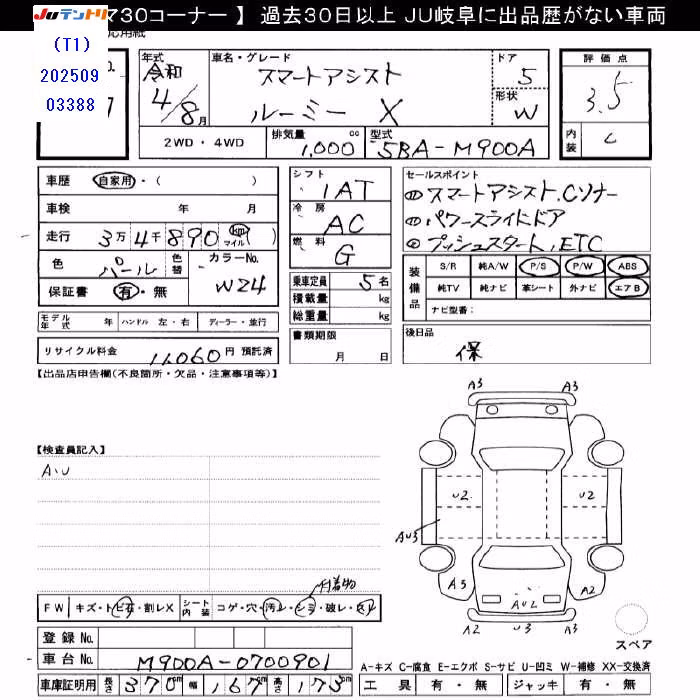 JUテントリ 730コーナー 】 過去30日以上 JU岐阜に出品歴がない車両
(T1)
202509
03388
年式 令和 4/8月
車名・グレード スマートアシスト
ルーミー X
ドア 5
形状 W
評価点 3.5
内装 C
2WD・4WD 排気量 1,000 cc 型式 5BA-M900A
車歴 自家用・( )
車検 年 月
走行 3万4千890 km マイル ( )
色 パール 色替 カラーNo. W24
保証書 有・無
シフト 1AT
冷房 AC
燃料 G
乗車定員 5名
積載量 kg
総重量 kg
セールスポイント
① スマートアシスト、Cソナー
② パワースライドドア
③ プッシュスタート、ETC
装備品 S/R 純A/W P/S P/W ABS
純TV 純ナビ 革シート 外ナビ エアB
ナビ型番：
モデル年式 年 ハンドル 左・右 ディーラー・並行
書類期限 月 日
後日品 保
リサイクル料金 11,060 円 預託済
【出品店申告欄(不良箇所・欠品・注意事項等)】
【検査員記入】
A・U
A3 A3
U2 U2
AU3
A3 A2
AU2
A2 U3 A3
スペア
付着物
FW キズ・トビ石・割レX シート内装 コゲ・穴・汚レ・シミ・破レ・スレ
登録No.
車台No. M900A-0700901
車庫証明用 長さ 370cm 幅 167cm 高さ 173cm
A-キズ C-腐食 E-エクボ S-サビ U-凹ミ W-補修 XX-交換済
工具 有・無 ジャッキ 有・無